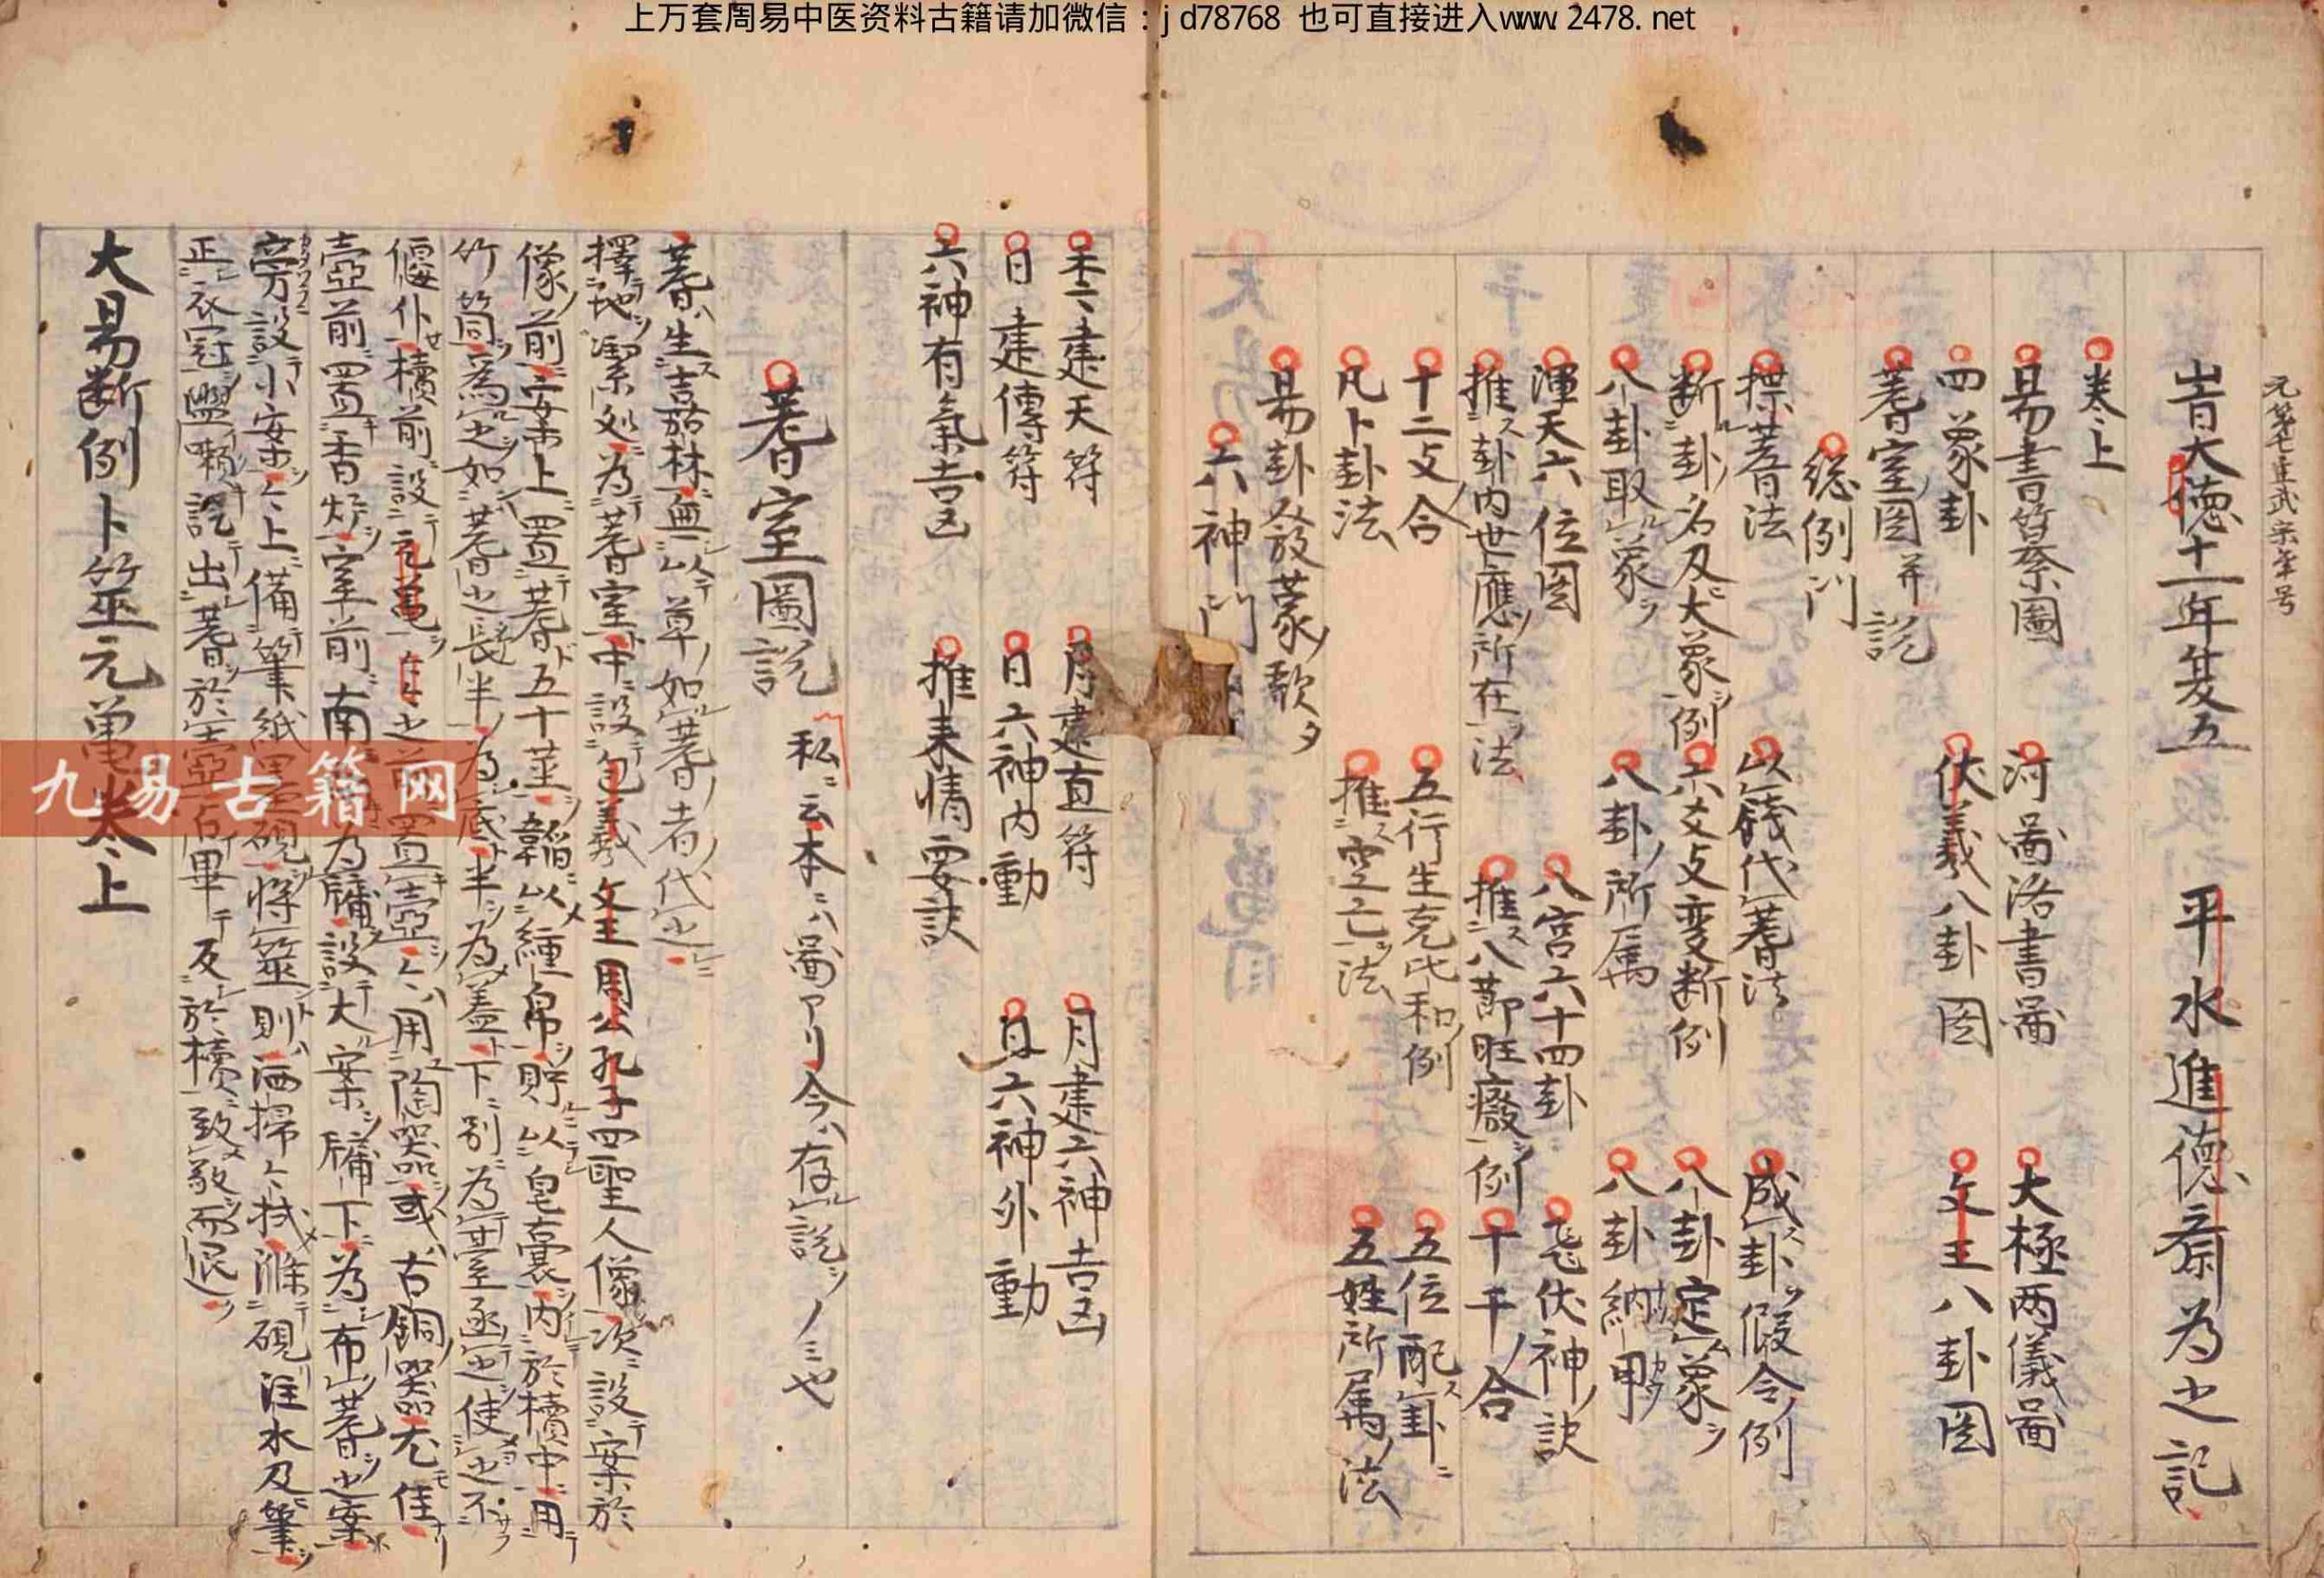 上万套周易中医资料古籍请加微信：jd78768 也可直接进入www.2478.net
旹大德十一年癸五 平水進德斎為之記
卷上
易書筮祭圖 河啚洛書啚 大極两儀啚
四象卦 伏羲八卦図 文王八卦図
蓍室図并説
総例門
揲蓍法 以銭代蓍法 成卦假令例
断卦名及大象例 六爻爻变断例 八卦定象
八卦取象 八卦所属 八卦納甲
渾天六位図 八宮六十四卦 飛伏神訣
推卦内世應所在法 推八節旺癈例 十干合
十二支合 五行生克比和例 五位配卦
凡卜卦法 推空亡法 五姓所属法
易卦發蒙歌
六神門
建天符 月建直符 月建六神吉凶
日建傳符 日六神内動 日六神外動
六神有氣吉凶 推来情要訣
蓍室圖説 私云本ニハ啚アリ今ハ存説ノミ也
蓍生吉嘉林無以草如蓍者代之
擇地潔処為蓍室中設包羲文王周公孔子四聖人像次設案於
像前安案上置蓍五十莖韜以纁帛貯以皂囊内於櫝中用
竹筒為之如蓍之長半為底半為蓋下別為臺函之使之不
偃仆櫝前設元龜之前置壺用陶器或古銅器尤佳
壺前置香炉室前南為牖設大案牖下為布蓍之案
旁設小案上備筆紙墨硯将筮則洒掃拭滌硯注水及筆
正衣冠盥嚫訖出蓍於壺占畢反於櫝致敬而退
大易断例卜筮元龜卷上
九易古籍网